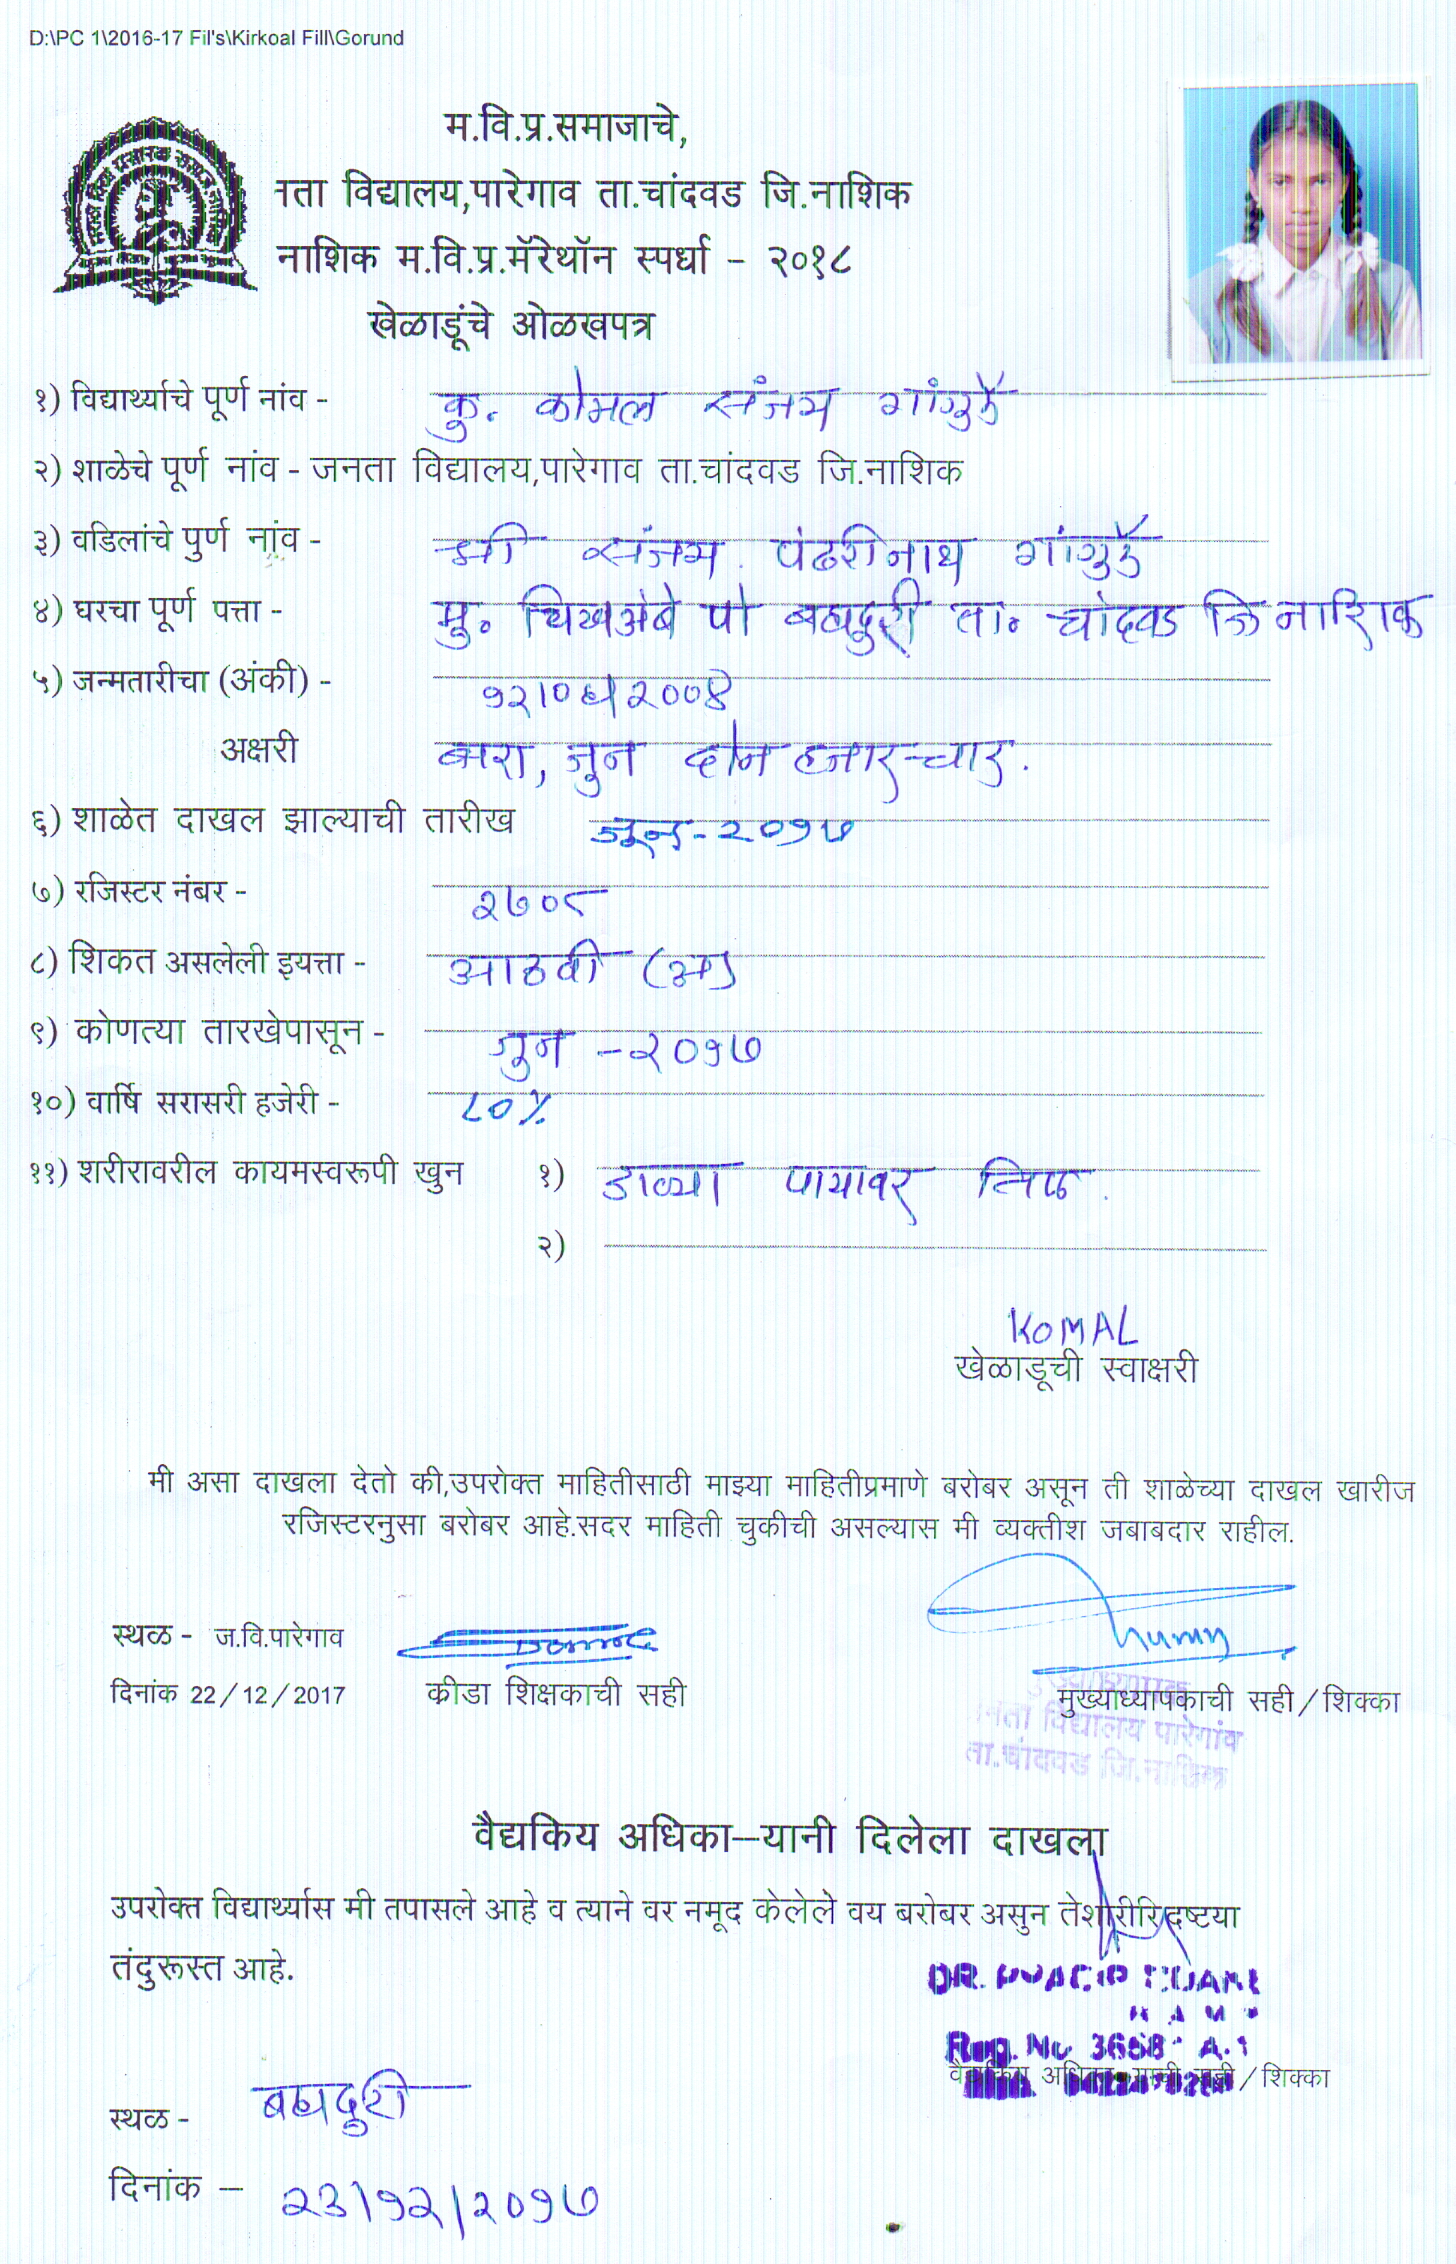 D:\PC 1\2016-17 Fil's\Kirkoal Fill\Gorund
म.वि.प्र.समाजाचे,
नता विद्यालय,पारेगाव ता.चांदवड जि.नाशिक
नाशिक म.वि.प्र.मॅरेथॉन स्पर्धा - २०१८
खेळाडूंचे ओळखपत्र
१) विद्यार्थ्याचे पूर्ण नांव - कु. कोमल संजय गांगुर्डे
२) शाळेचे पूर्ण नांव - जनता विद्यालय,पारेगाव ता.चांदवड जि.नाशिक
३) वडिलांचे पुर्ण नांव - श्री संजय पंढरीनाथ गांगुर्डे
४) घरचा पूर्ण पत्ता - मु. चिखअंबे पो बहादुरी ता. चांदवड जि नाशिक
५) जन्मतारीचा (अंकी) - १२/०६/२००४
अक्षरी बारा, जुन दोन हजार चार.
६) शाळेत दाखल झाल्याची तारीख जून - २०१७
७) रजिस्टर नंबर - २७०८
८) शिकत असलेली इयत्ता - आठवी (अ)
९) कोणत्या तारखेपासून - जुन - २०१७
१०) वार्षि सरासरी हजेरी - ८०%
११) शरीरावरील कायमस्वरूपी खुन १) डाव्या पायावर तिळ.
२)
KOMAL
खेळाडूची स्वाक्षरी
मी असा दाखला देतो की,उपरोक्त माहितीसाठी माझ्या माहितीप्रमाणे बरोबर असून ती शाळेच्या दाखल खारीज
रजिस्टरनुसा बरोबर आहे.सदर माहिती चुकीची असल्यास मी व्यक्तीश जबाबदार राहील.
स्थळ - ज.वि.पारेगाव
दिनांक 22/12/2017 कीडा शिक्षकाची सही मुख्याध्यापकाची सही/शिक्का
मुख्याध्यापक
जनता विद्यालय पारेगांव
ता.चांदवड जि.नाशिक
वैद्यकिय अधिका-यानी दिलेला दाखला
उपरोक्त विद्यार्थ्यास मी तपासले आहे व त्याने वर नमूद केलेले वय बरोबर असुन तेशारीरिदष्टया
तंदुरूस्त आहे.
DR.
Reg. No
वैद्यकिय सही/शिक्का
स्थळ - बहादुरी
दिनांक - २३/१२/२०१७